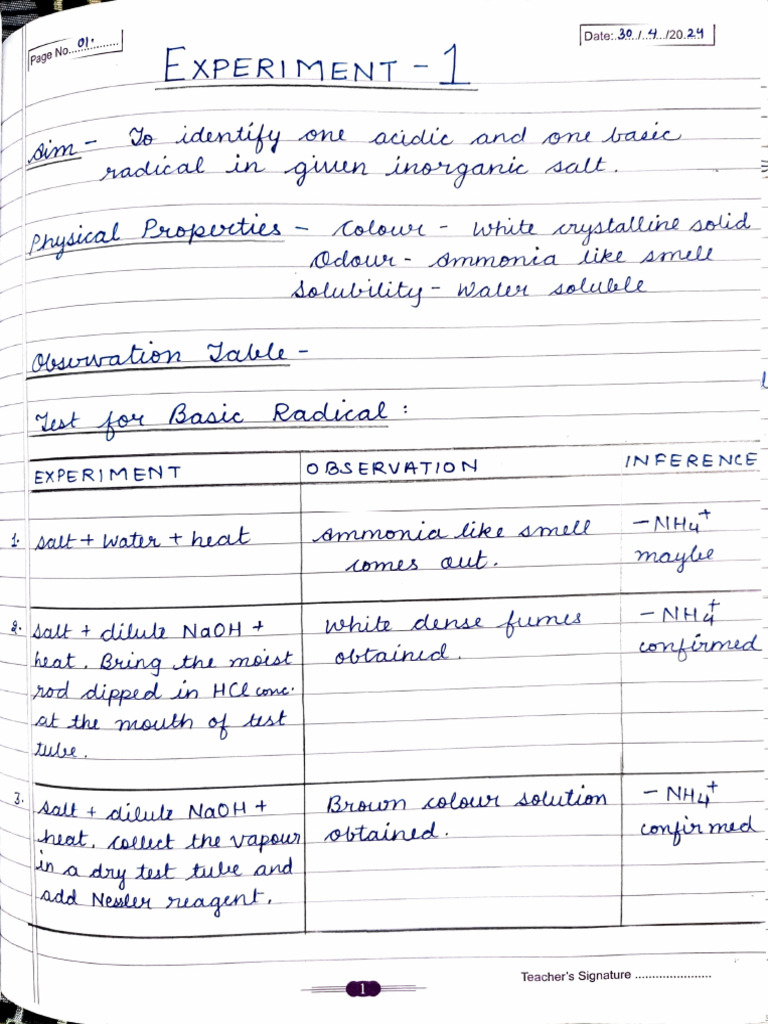 Page No. 01.
Date: 30/4/2024
EXPERIMENT - 1
Aim - To identify one acidic and one basic
radical in given inorganic salt.
Physical Properties - Colour - White crystalline solid
Odour - Ammonia like smell
Solubility - Water soluble
Observation Table -
Test for Basic Radical :
EXPERIMENT OBSERVATION INFERENCE
1. Salt + Water + heat
Ammonia like smell
comes out.
- NH4+
maybe
2. Salt + dilute NaOH +
heat. Bring the moist
rod dipped in HCl conc.
at the mouth of test
tube.
White dense fumes
obtained.
- NH4+
confirmed
3. Salt + dilute NaOH +
heat. Collect the vapour
in a dry test tube and
add Nessler reagent.
Brown colour solution
obtained.
- NH4+
confirmed
Teacher's Signature ......................
1